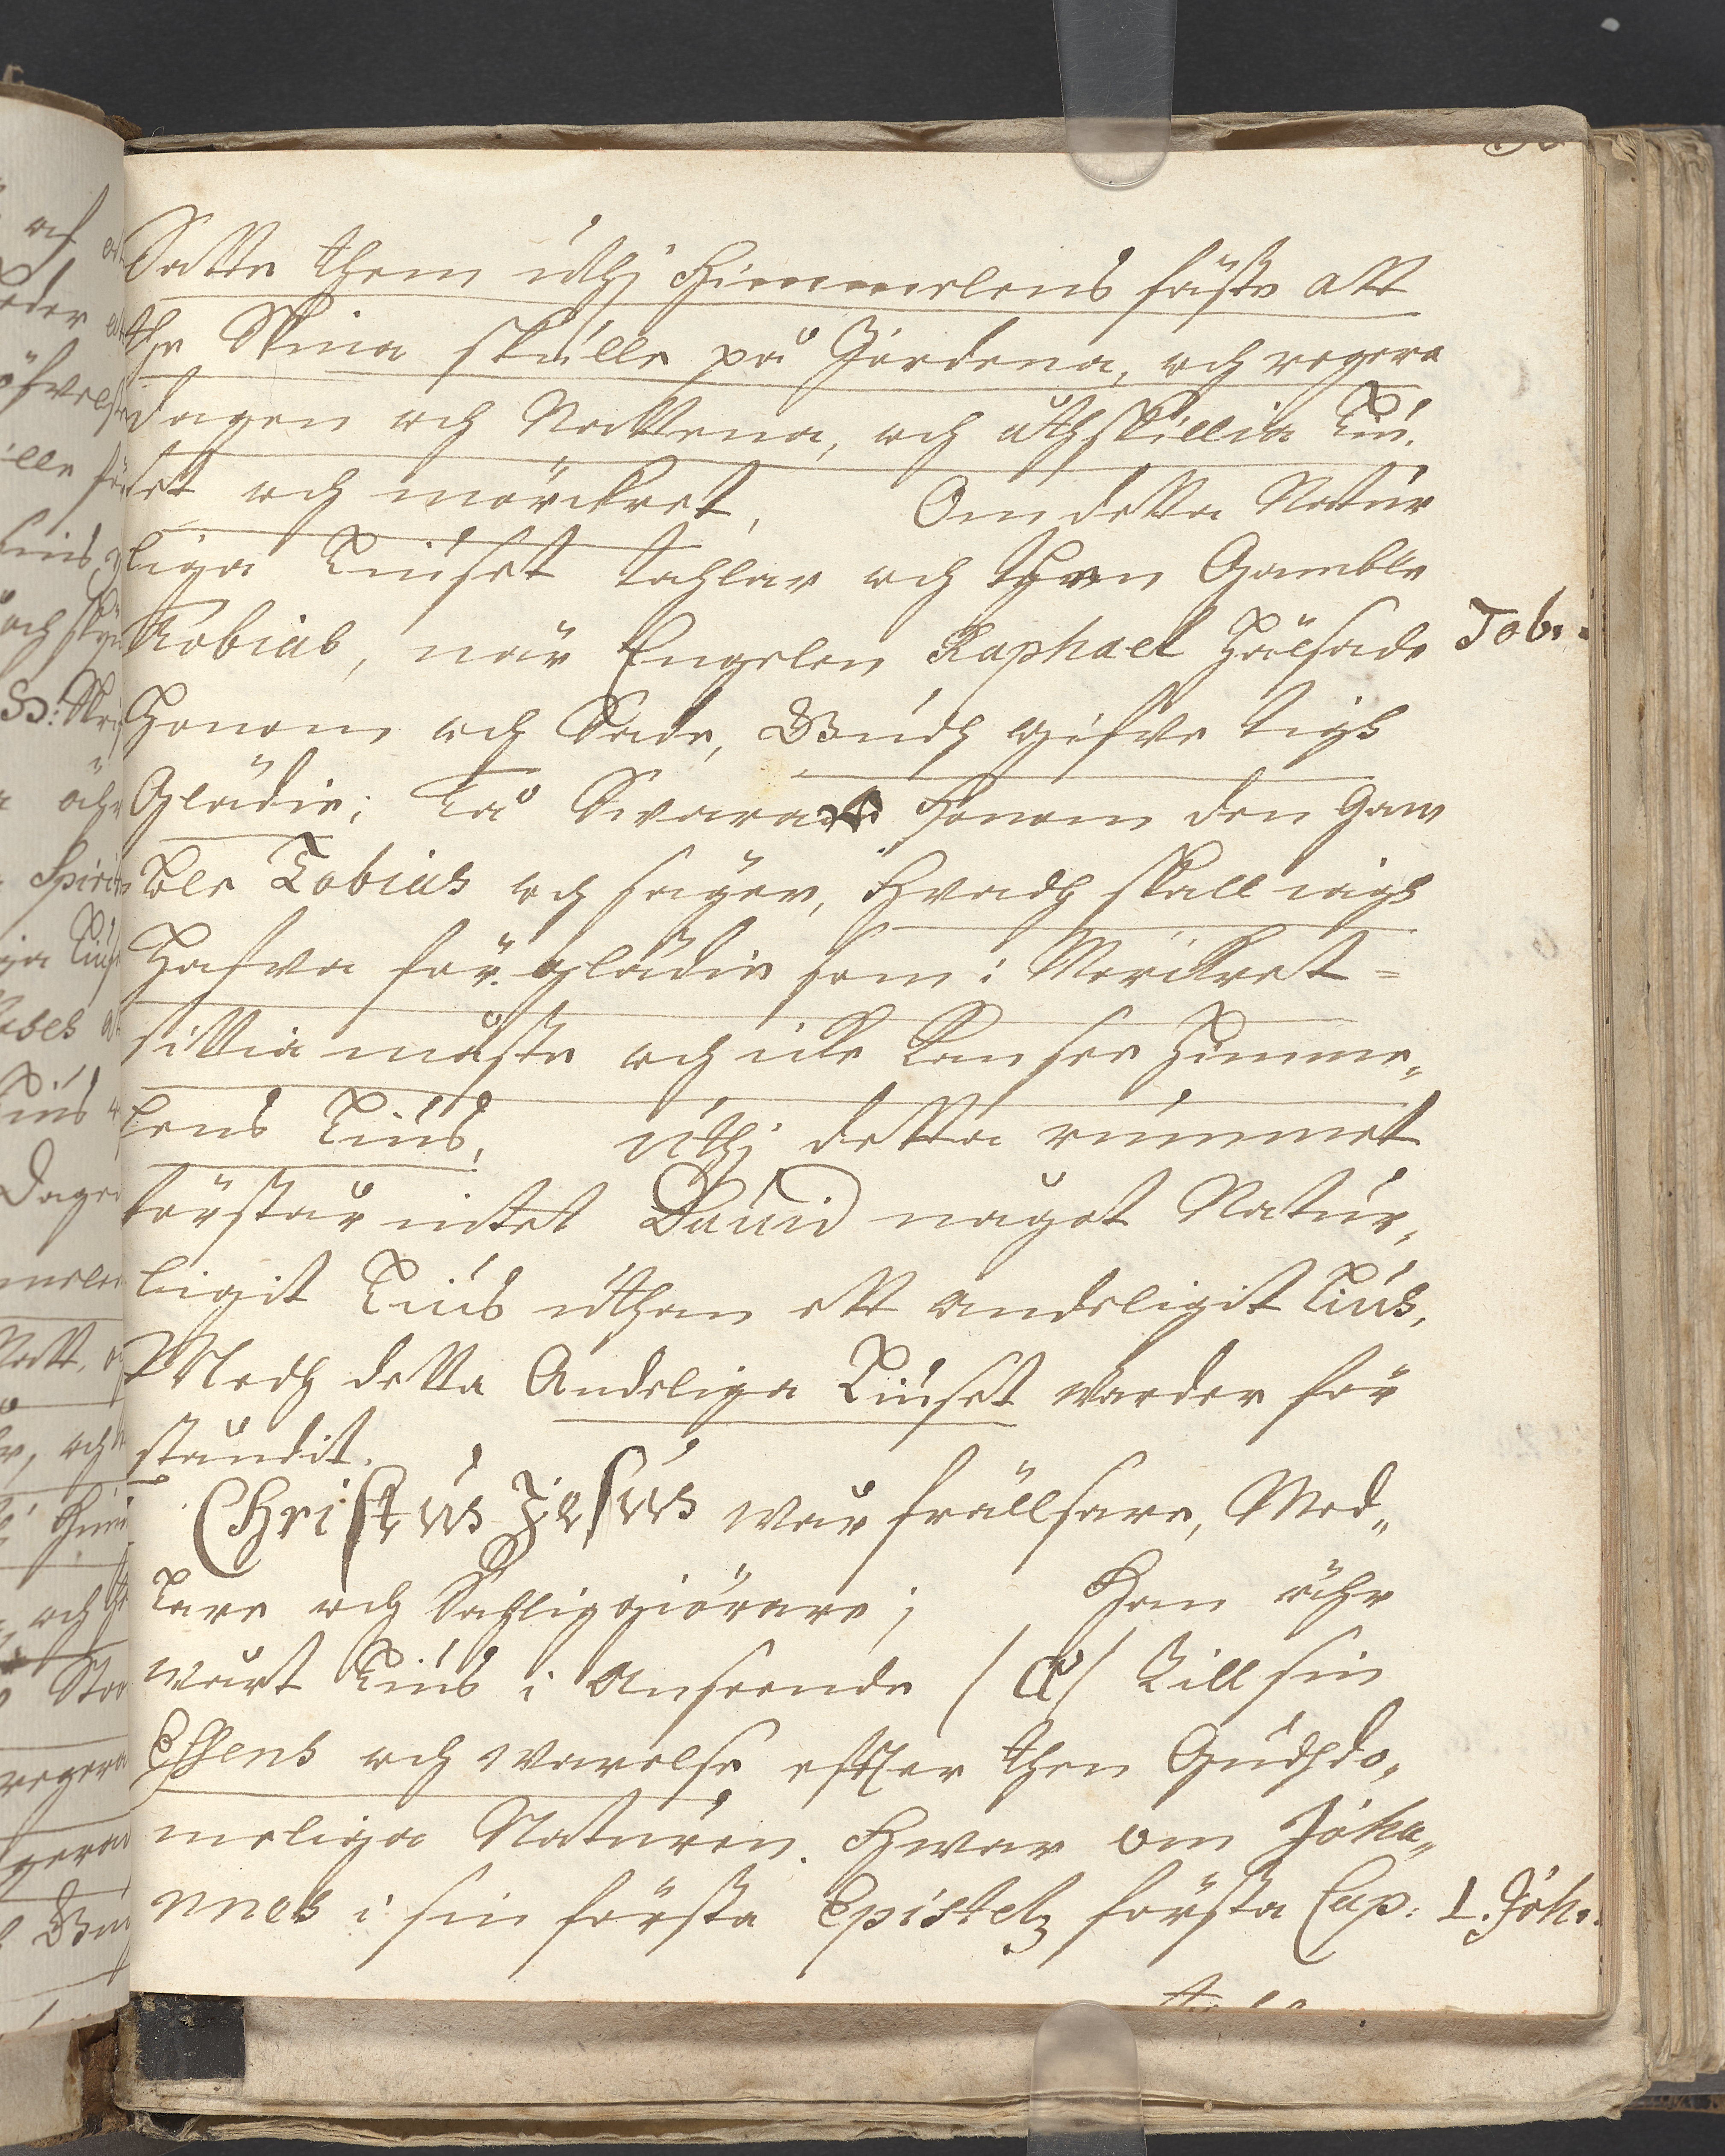 Satte them uthj Himmelens fäste att
the Skina skulle på Jordena, och regera
dagen och Nattena, och uthskillia Liu-
set och mörckret, Om detta Natur
liga Liuset tahlar och then Gamble
Tobias, när Engelen Raphael Hälsade Tob.
Honom och Sade, Gudh gifve tigh
Glädie; Tå Swarar Honom den Gam
ble Tobias och säger, Hvadh skall iagh
Hafva för glädie som i Mörckret =
sittia måste och icke kan see Himme„
lens Liús, uthj detta rummet
förstår intet Dauid något Natur,
ligit Liús uthan ett andeligit Liús,
Medh detta Andeliga Liuset warder för
ståndit.
Christus Jesus wår frällsare, Med„
lare och Sahliggiörare; Han ähr
wårt Liús i Anseende (α) Till sin
Essens och warelse effter then Gudhdo„
meliga Naturen. Hwar om Joha„
nnes i sin första Epistel första Cap: 1. Joh.